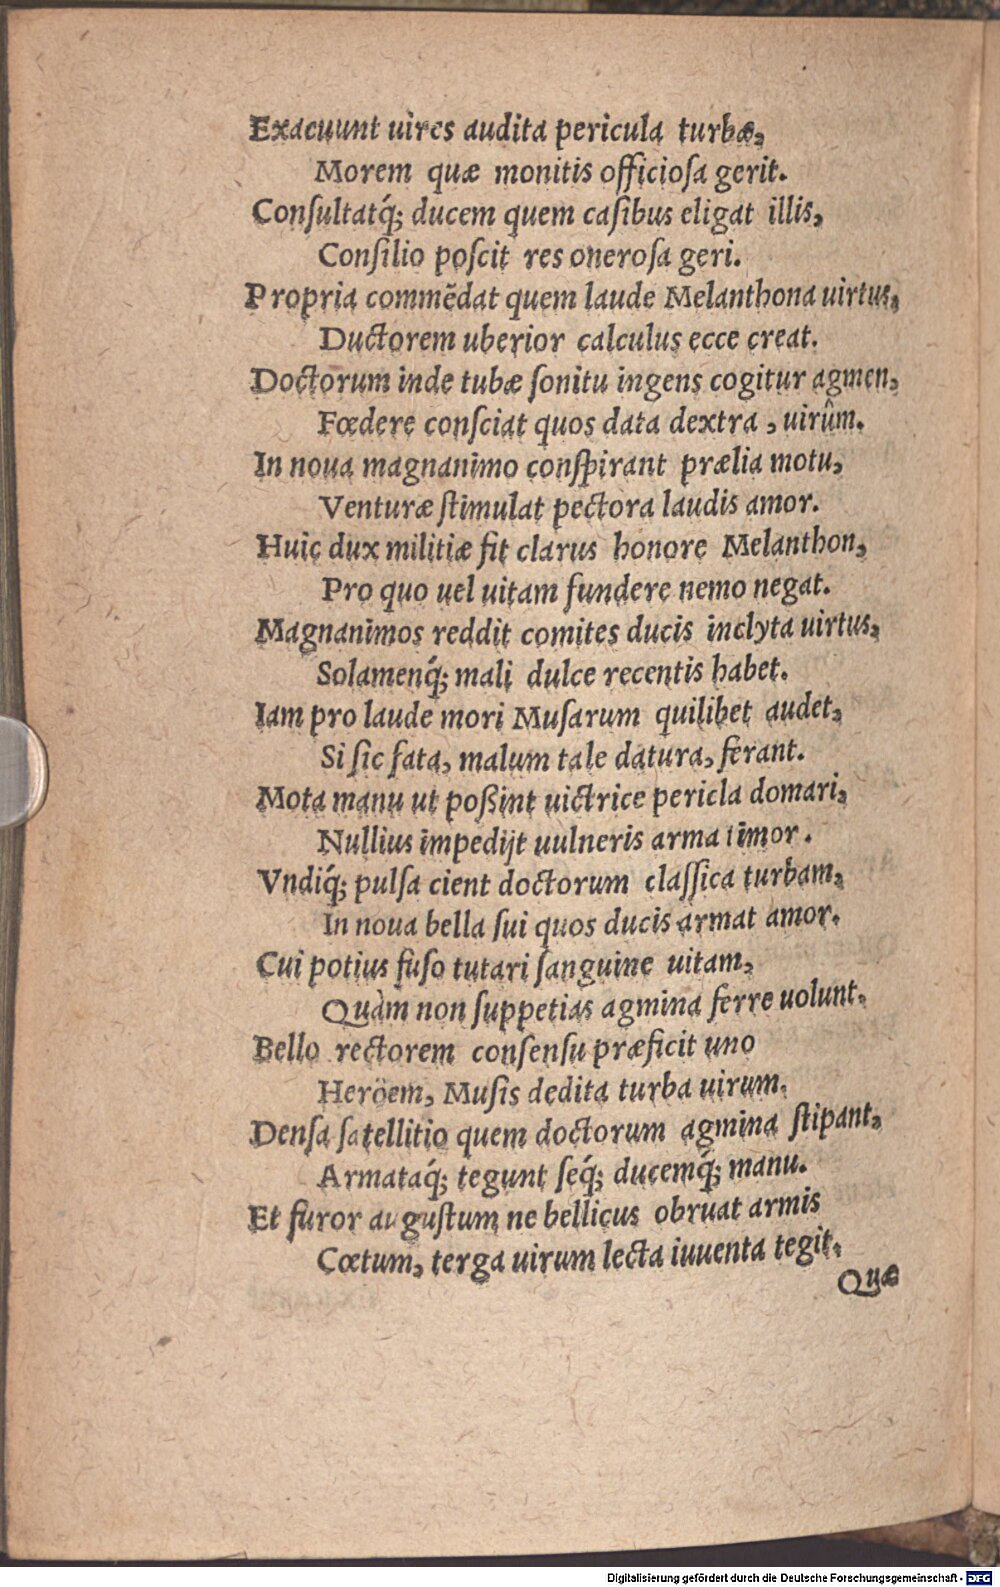 Exacuunt uires audita pericula turbæ,
Morem quæ monitis officioſa gerit.
Conſultatq́; ducem quem caſibus eligat illis,
Conſilio poſcit res oneroſa geri.
Propria commẽdat quem laude Melanthona uirtus,
Ductorem uberior calculus ecce creat.
Doctorum inde tubæ ſonitu ingens cogitur agmen,
Fœdere conſciat quos data dextra, uirûm.
In noua magnanimo conſpirant prælia motu,
Venturæ ſtimulat pectora laudis amor.
Huic dux militiæ fit clarus honore Melanthon,
Pro quo uel uitam fundere nemo negat.
Magnanimos reddit comites ducis inclyta uirtus,
Solamenq́; mali dulce recentis habet.
Iam pro laude mori Muſarum quilibet audet,
Si ſic fata, malum tale datura, ferant.
Mota manu ut poßint uictrice pericla domari,
Nullius impedijt uulneris arma timor.
Vndiq́; pulſa cient doctorum claſſica turbam,
In noua bella ſui quos ducis armat amor.
Cui potius fuſo tutari ſanguine uitam,
Quàm non ſuppetias agmina ferre uolunt.
Bello rectorem conſenſu præficit uno
Heröem, Muſis dedita turba uirum.
Denſa ſatellitio quem doctorum agmina ſtipant,
Armataq́; tegunt ſeq́; ducemq́; manu.
Et furor auguſtum ne bellicus obruat armis
Cœtum, terga uirum lecta iuuenta tegit.
Quæ
Digitalisierung gefördert durch die Deutsche Forschungsgemeinschaft - DFG